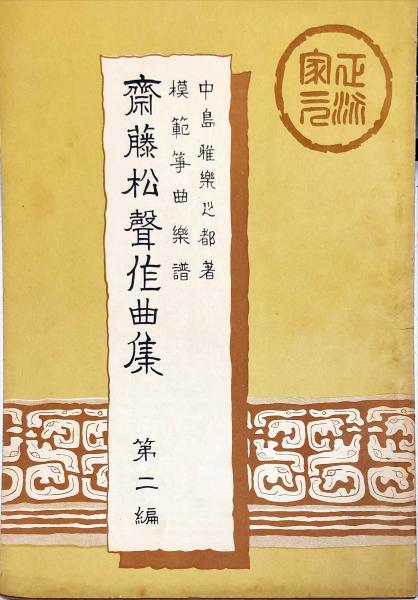 中島雅樂之都著
模範箏曲樂譜
齋藤松聲作曲集
第二編
正派
家元